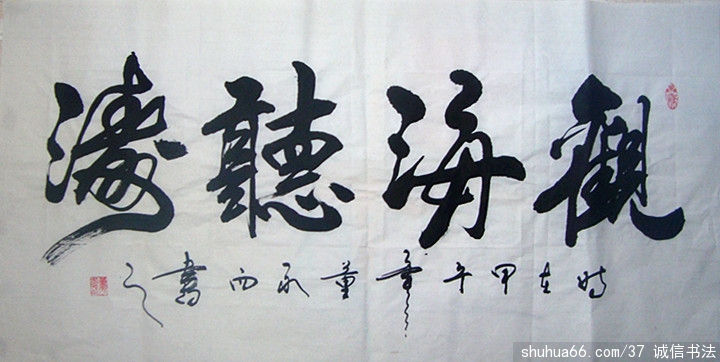 觀海聽濤
時在甲午董書之
shuhua66.com/37 诚信书法